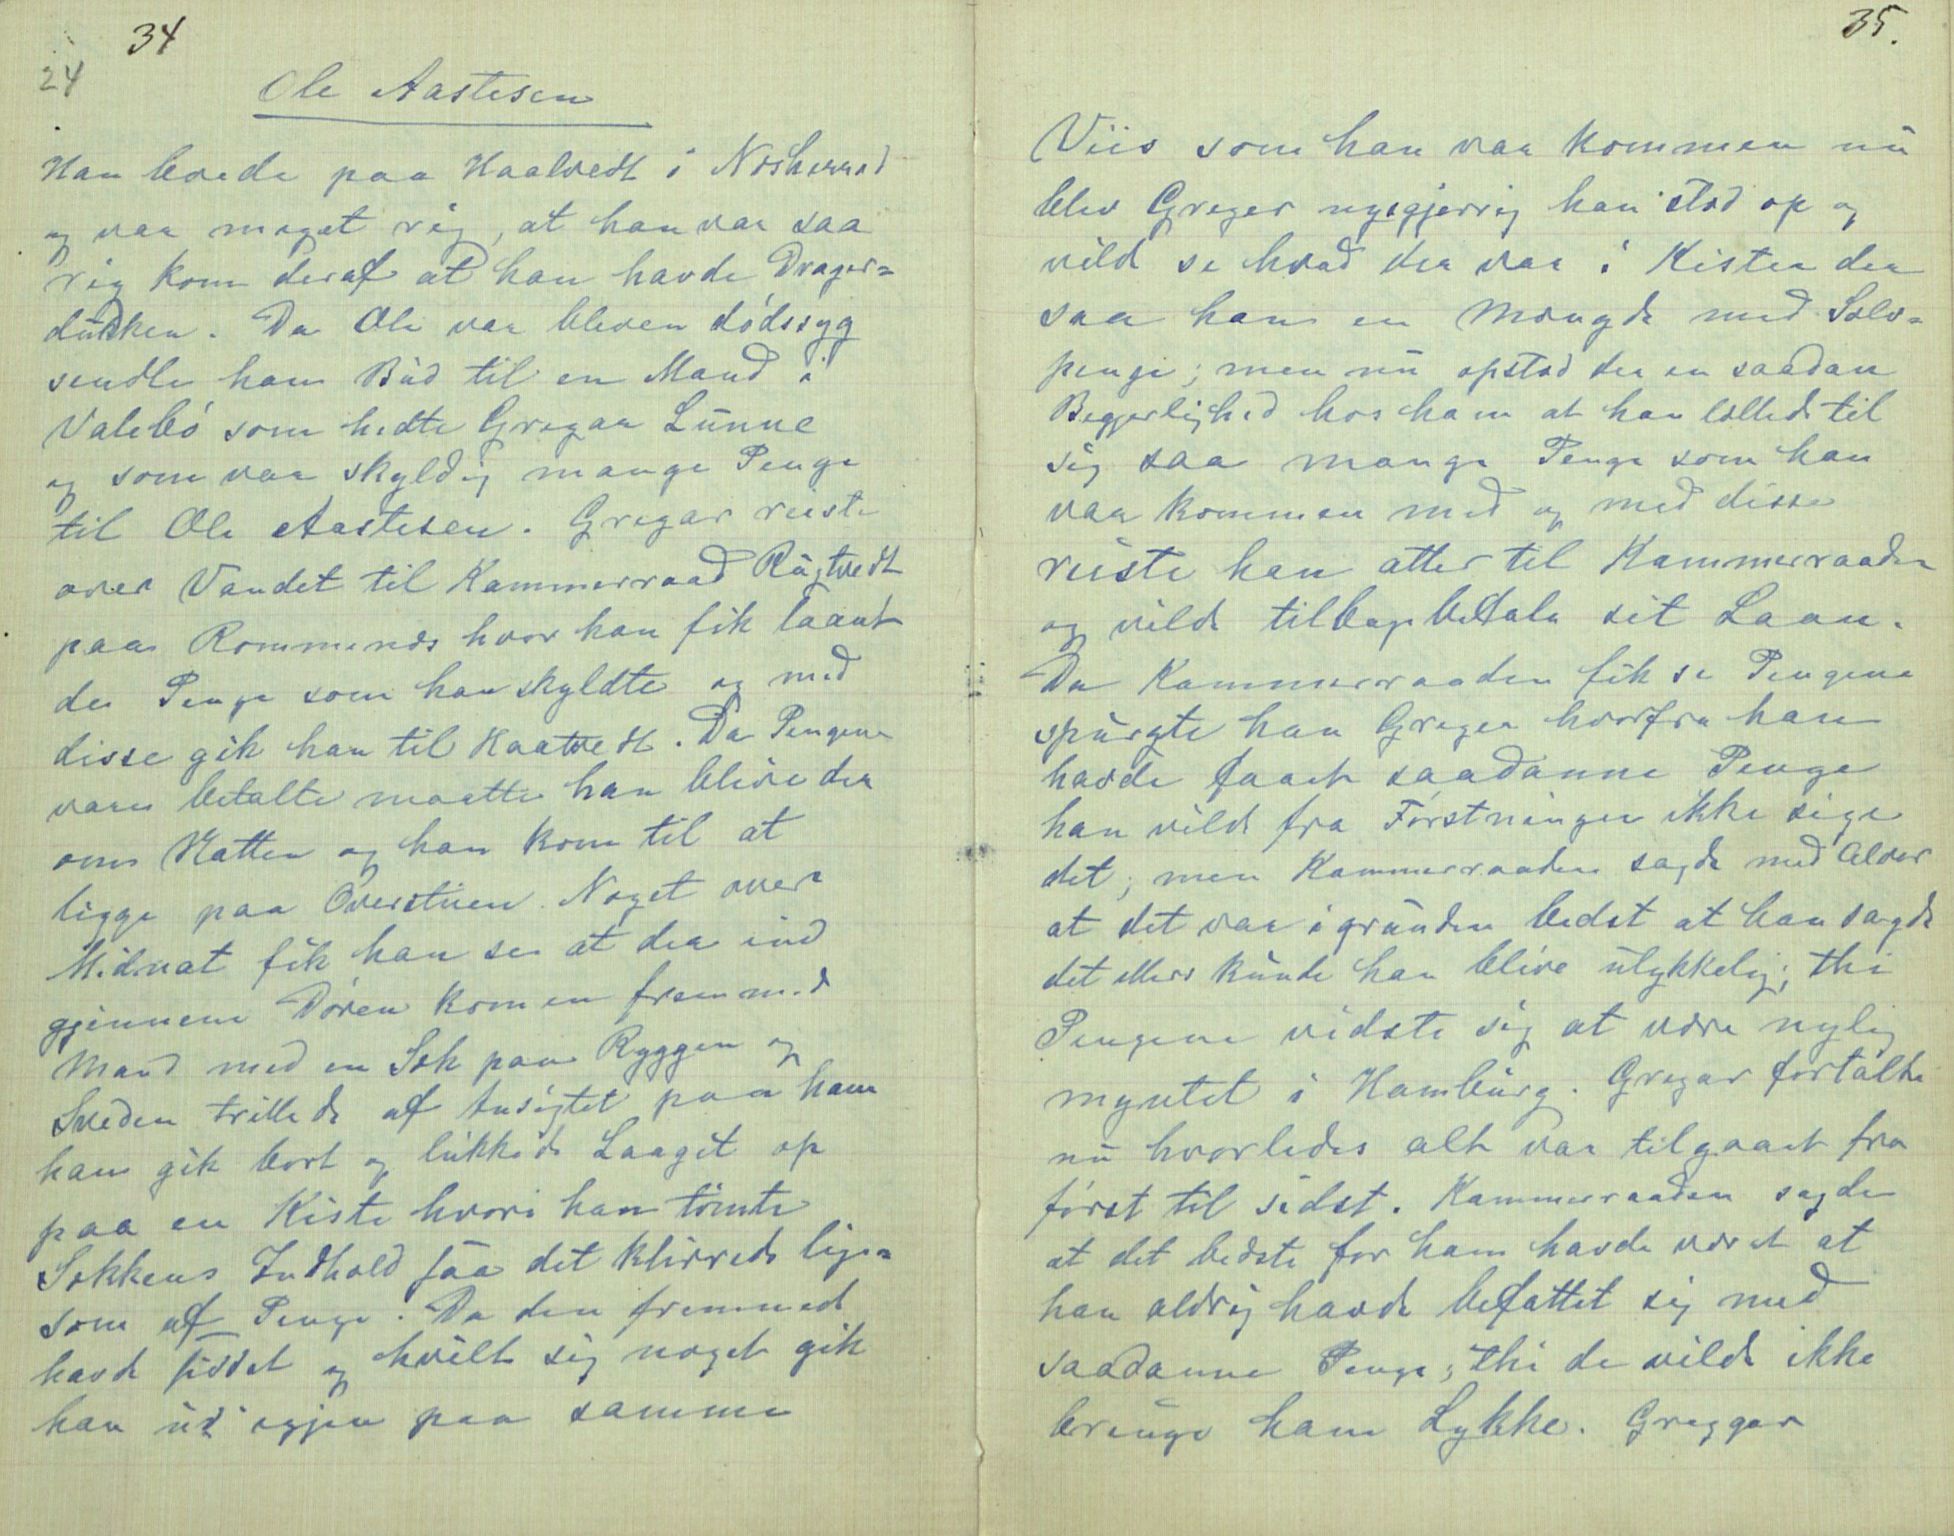 34
24
Ole Aastesen
Han boede paa Haatvedt i Nesherred
og var meget rig, at han var saa
rig kom deraf at han havde Drager-
dukken. Da Ole var bleven dødssyg
sendte han Bud til en Mand i
Valebø som hedte Gregar Lunne
og som var skyldig mange Penge
til Ole Aastesen. Gregar reiste
over Vandet til Kammerraad Rugtvedt
paa Romnes hvor han fik laant
de Penge som han skyldte og med
disse gik han til Haatvedt. Da Pengene
vare betalte maatte han blive der
om Natten og han kom til at
ligge paa Overstuen. Noget over
Midnat fik han se at der ind
gjennem Døren kom en fremmed
Mand med en Sæk paa Ryggen og
Sveden trillede af Ansigtet paa ham
han gik bort og lukkede Laaget op
paa en Kiste hvori han tømte
Sækkens Indhold saa det klirrede lige-
som af Penge. Da den fremmede
havde siddet og hvilt sig noget gik
han ud igjen paa samme
35.
Viis som han var kommen nu
blev Greger nysgjerrig han stod op og
vilde se hvad der var i Kisten der
saa han en Mængde med Sølv-
penge; men nu opstod der en saadan
Begjerlighed hos ham at han tællede til
sig saa mange Penge som han
var kommen med og med disse
reiste han atter til Kammerraaden
og vilde tilbagebetale sit Laan.
Da Kammerraaden fik se Pengene
spurgte han Greger hvorfra han
havde faaet saadanne Penge
han vilde fra Førstningen ikke sige
det; men Kammerraaden sagde med Alvor
at det var igrunden bedst at han sagde
det ellers kunde han blive ulykkelig; thi
Pengene vidste sig at være nylig
myntet i Hamburg. Gregar fortalte
nu hvorledes alt var tilgaaet fra
først til sidst. Kammerraaden sagde
at det bedste for ham havde været at
han aldrig havde befattet sig med
saadanne Penge; thi de vilde ikke
bringe ham Lykke. Greggar